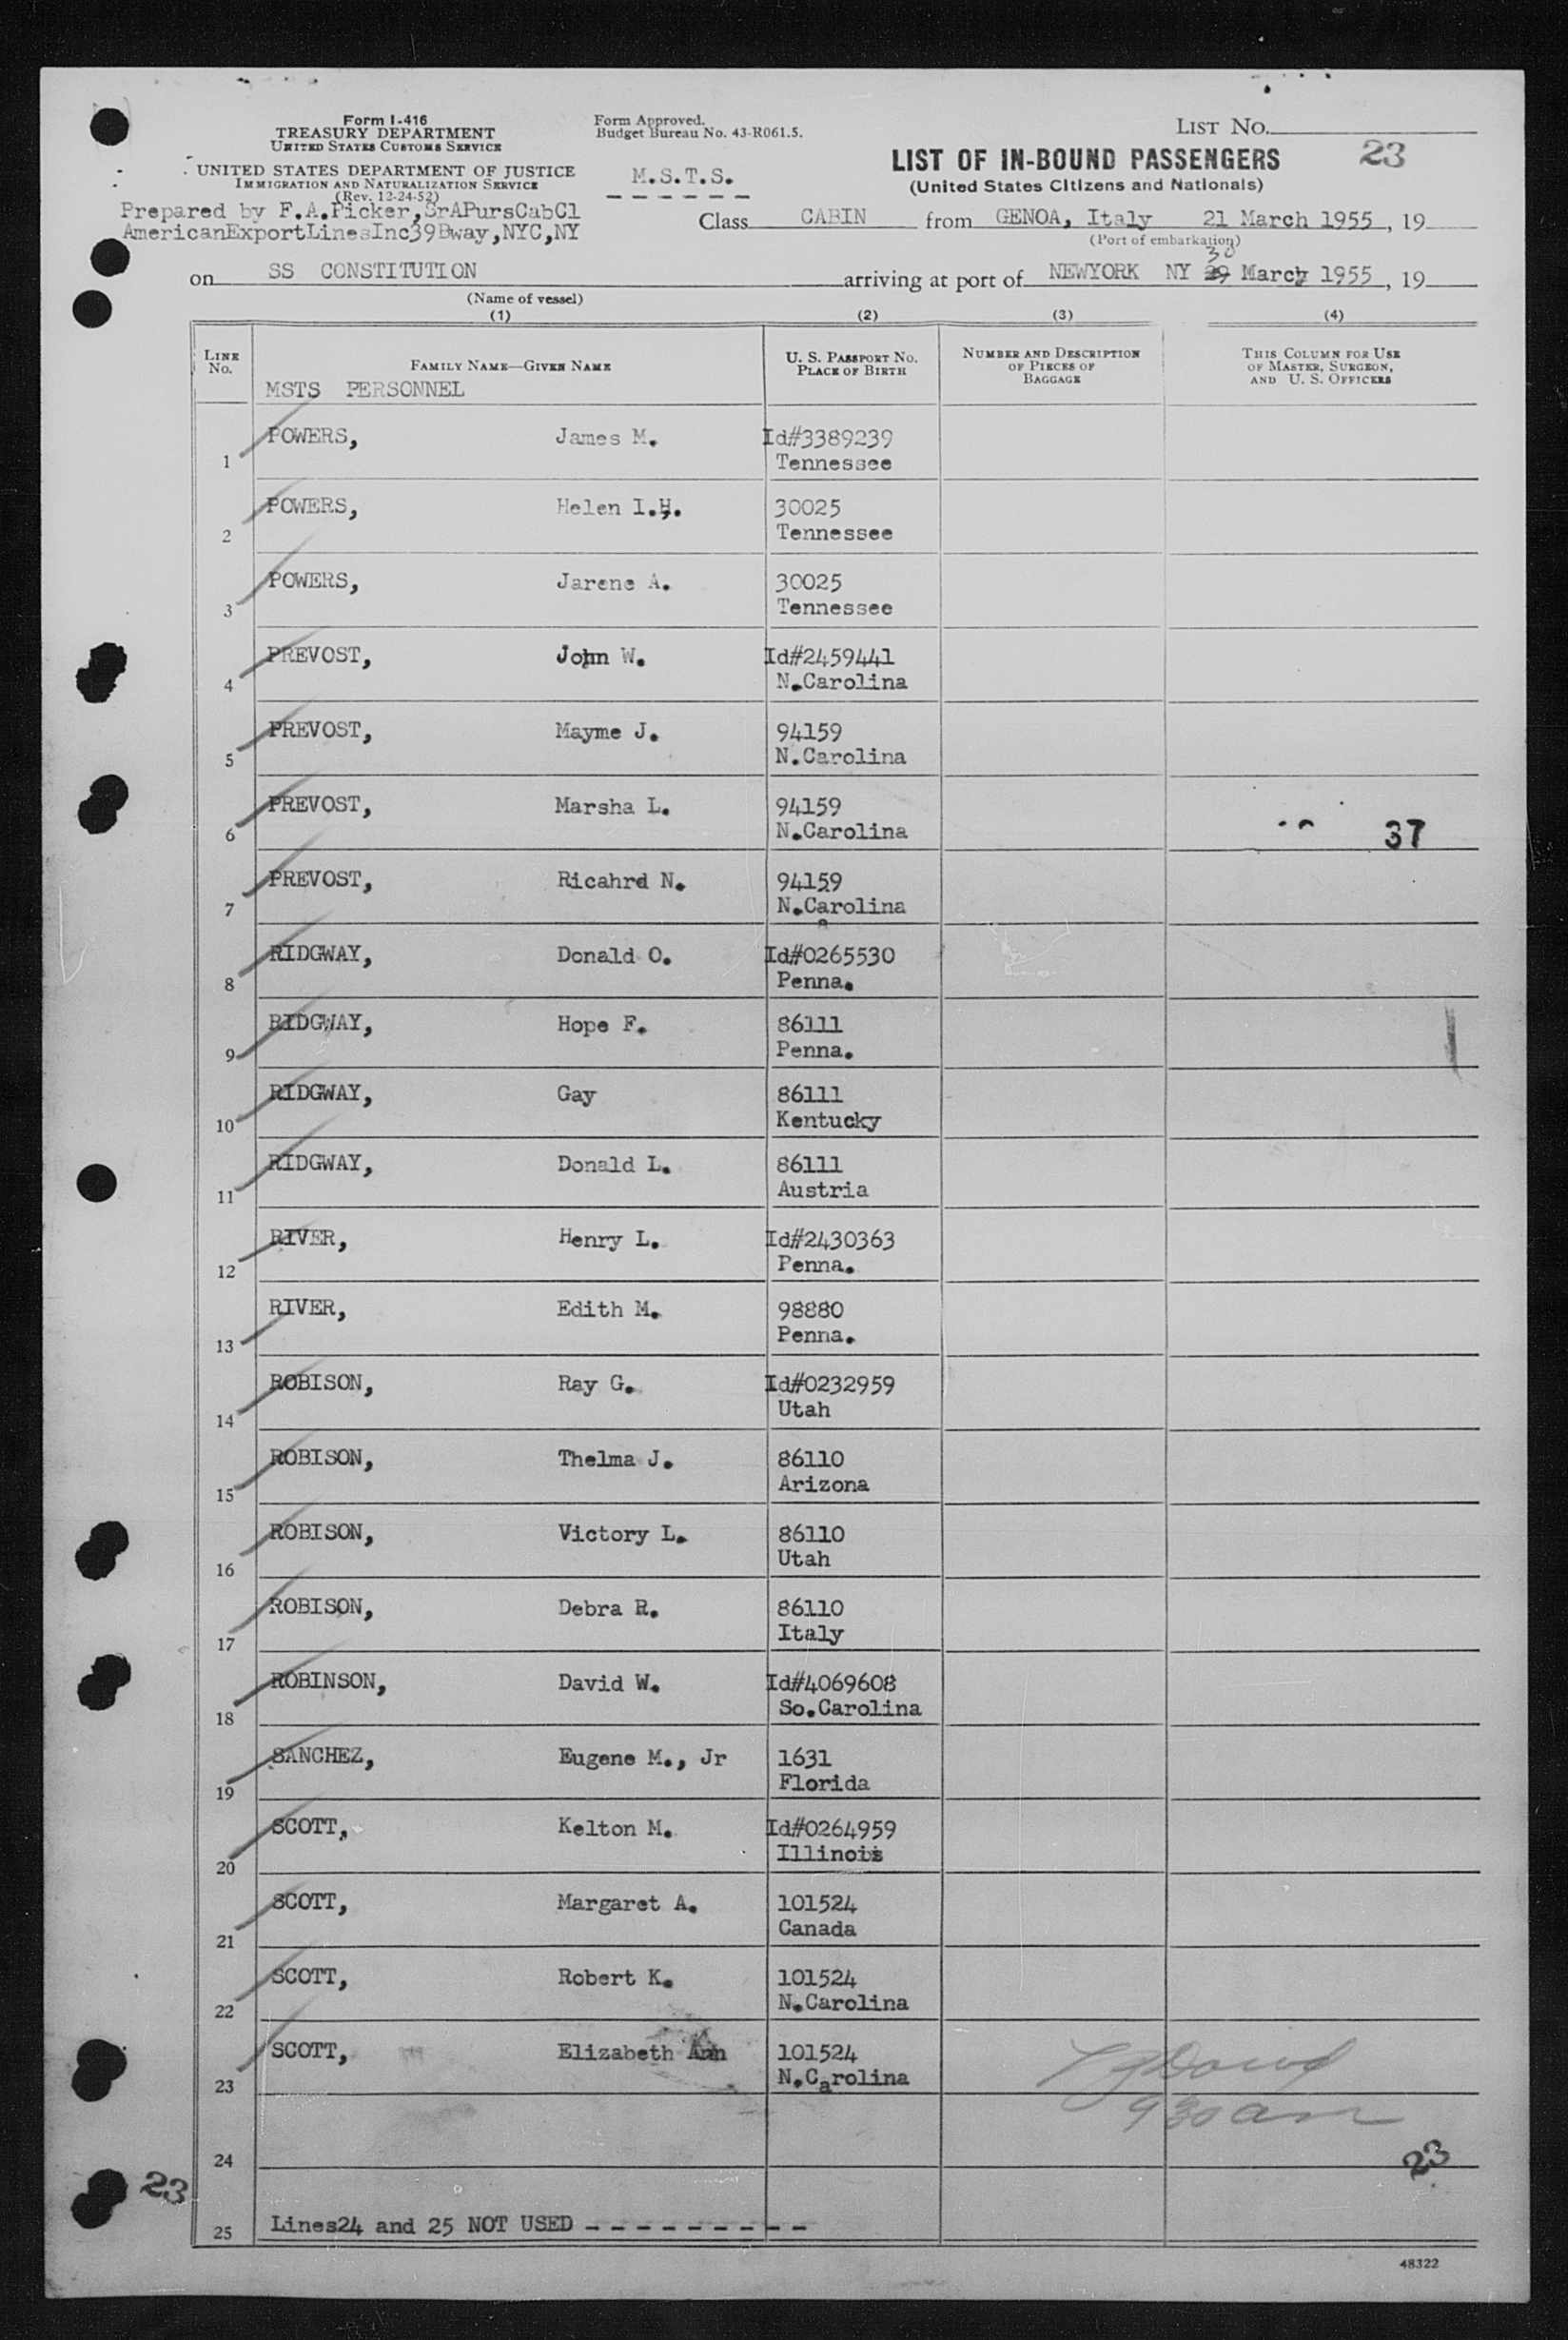 Form I-416
TREASURY DEPARTMENT
UNITED STATES CUSTOMS SERVICE
UNITED STATES DEPARTMENT OF JUSTICE
IMMIGRATION AND NATURALIZATION SERVICE
(Rev. 12-24-52)
Prepared by F.A.Picker,SrAPursCabCl
AmericanExportLinesInc39Bway,NYC,NY
Form Approved.
Budget Bureau No. 43-R061.5.
M.S.T.S.
LIST NO.
23
LIST OF IN-BOUND PASSENGERS
(United States Citizens and Nationals)
Class CABIN from GENOA, Italy 21 March 1955, 19
(Port of embarkation)
30
on SS CONSTITUTION arriving at port of NEWYORK NY 29 March 1955, 19
(Name of vessel)
(1) (2) (3) (4)
LINE NO. FAMILY NAME—GIVEN NAME U. S. PASSPORT NO. PLACE OF BIRTH NUMBER AND DESCRIPTION OF PIECES OF BAGGAGE THIS COLUMN FOR USE OF MASTER, SURGEON, AND U. S. OFFICERS
MSTS PERSONNEL
1 POWERS, James M. Id#3389239
Tennessee
2 POWERS, Helen I.H. 30025
Tennessee
3 POWERS, Jarene A. 30025
Tennessee
4 PREVOST, John W. Id#2459441
N.Carolina
5 PREVOST, Mayme J. 94159
N.Carolina
6 PREVOST, Marsha L. 94159
N.Carolina
37
7 PREVOST, Ricahrd N. 94159
N.Carolina
8 RIDGWAY, Donald O. Id#0265530
Penna.
9 RIDGWAY, Hope F. 86111
Penna.
10 RIDGWAY, Gay 86111
Kentucky
11 RIDGWAY, Donald L. 86111
Austria
12 RIVER, Henry L. Id#2430363
Penna.
13 RIVER, Edith M. 98880
Penna.
14 ROBISON, Ray G. Id#0232959
Utah
15 ROBISON, Thelma J. 86110
Arizona
16 ROBISON, Victory L. 86110
Utah
17 ROBISON, Debra R. 86110
Italy
18 ROBINSON, David W. Id#4069608
So.Carolina
19 SANCHEZ, Eugene M., Jr 1631
Florida
20 SCOTT, Kelton M. Id#0264959
Illinois
21 SCOTT, Margaret A. 101524
Canada
22 SCOTT, Robert K. 101524
N.Carolina
23 SCOTT, Elizabeth Ann 101524
N.Carolina
930 am
24
23
23
25 Lines24 and 25 NOT USED - - - - - - - - -
48322